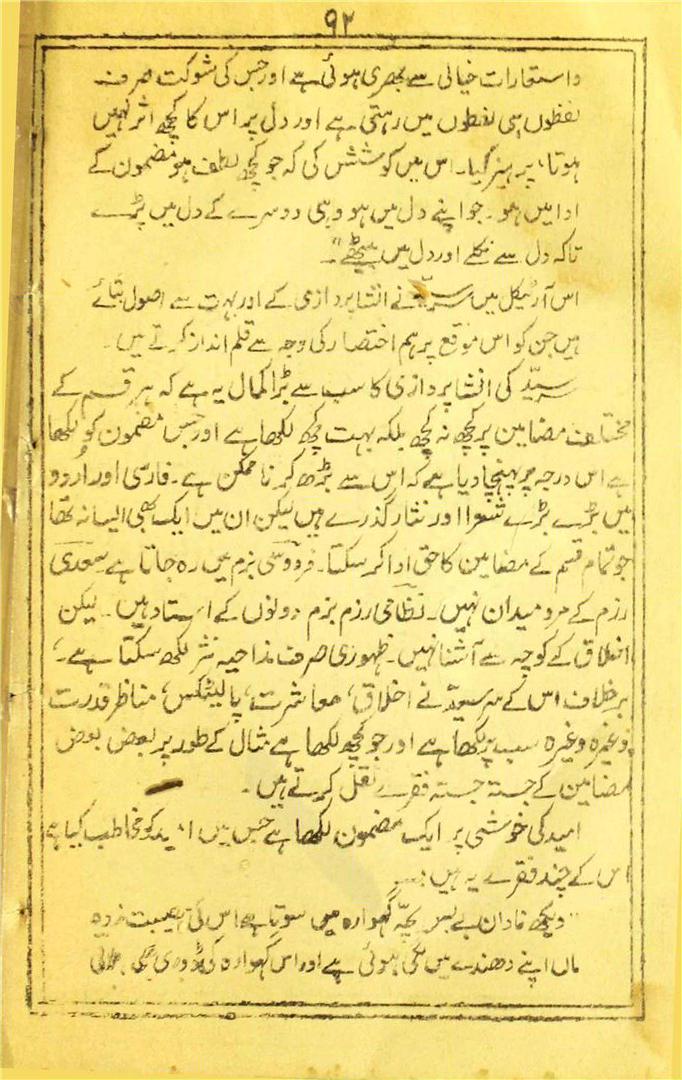 ۹۲
واستعارات خیالی سے بھری ہوئی ہے اور جس کی شوکت صرف
لفظوں ہی لفظوں میں رہتی ہے اور دل پر اس کا کچھ اثر نہیں
ہوتا، پرہیز کیا۔ اس میں کوشش کی کہ جو کچھ لطف ہو مضمون کے
ادا میں ہو۔ جو اپنے دل میں ہو وہی دوسرے کے دل میں پڑے
تاکہ دل سے نکلے اور دل میں بیٹھے"۔
اس آرٹیکل میں سرسید نے انشا پردازی کے اور بہت سے اصول بتائے
ہیں جن کو اس موقع پر ہم اختصار کی وجہ سے قلم انداز کرتے ہیں۔
سرسید کی انشا پردازی کا سب سے بڑا کمال یہ ہے کہ ہر قسم کے
مختلف مضامین پر کچھ نہ کچھ بلکہ بہت کچھ لکھا ہے اور جس مضمون کو لکھا
ہے اس درجہ پر پہنچا دیا ہے کہ اس سے بڑھ کر نا ممکن ہے۔ فارسی اور اُردو
میں بڑے بڑے شعرا اور نثار گذرے ہیں لیکن ان میں ایک بھی ایسا نہ تھا
جو تمام قسم کے مضامین کا حق ادا کر سکتا۔ فردوسی بزم میں رہ جاتا ہے سعدی
رزم کے مرد میدان نہیں۔ نظامی رزم بزم دونوں کے استاد ہیں۔ لیکن
اخلاق کے کوچہ سے آشنا نہیں۔ ظہوری صرف مداحیہ نثر لکھ سکتا ہے۔
برخلاف اس کے سرسید نے اخلاق، معاشرت، پالیٹکس، مناظر قدرت
وغیرہ وغیرہ سب پر لکھا ہے اور جو کچھ لکھا ہے مثال کے طور پر بعض بعض
مضامین کے جستہ جستہ فقرے نقل کرتے ہیں۔
امید کی خوشی پر ایک مضمون لکھا ہے جس میں امید کو مخاطب کیا ہے
اس کے چند فقرے یہ ہیں:
"دیکھ نادان بے بس بچہ گہوارہ میں سوتا ہے اس کی مصیبت زدہ
ماں اپنے دھندے میں لگی ہوئی ہے اور اس گہوارہ کی ڈوری بھی ہلاتی